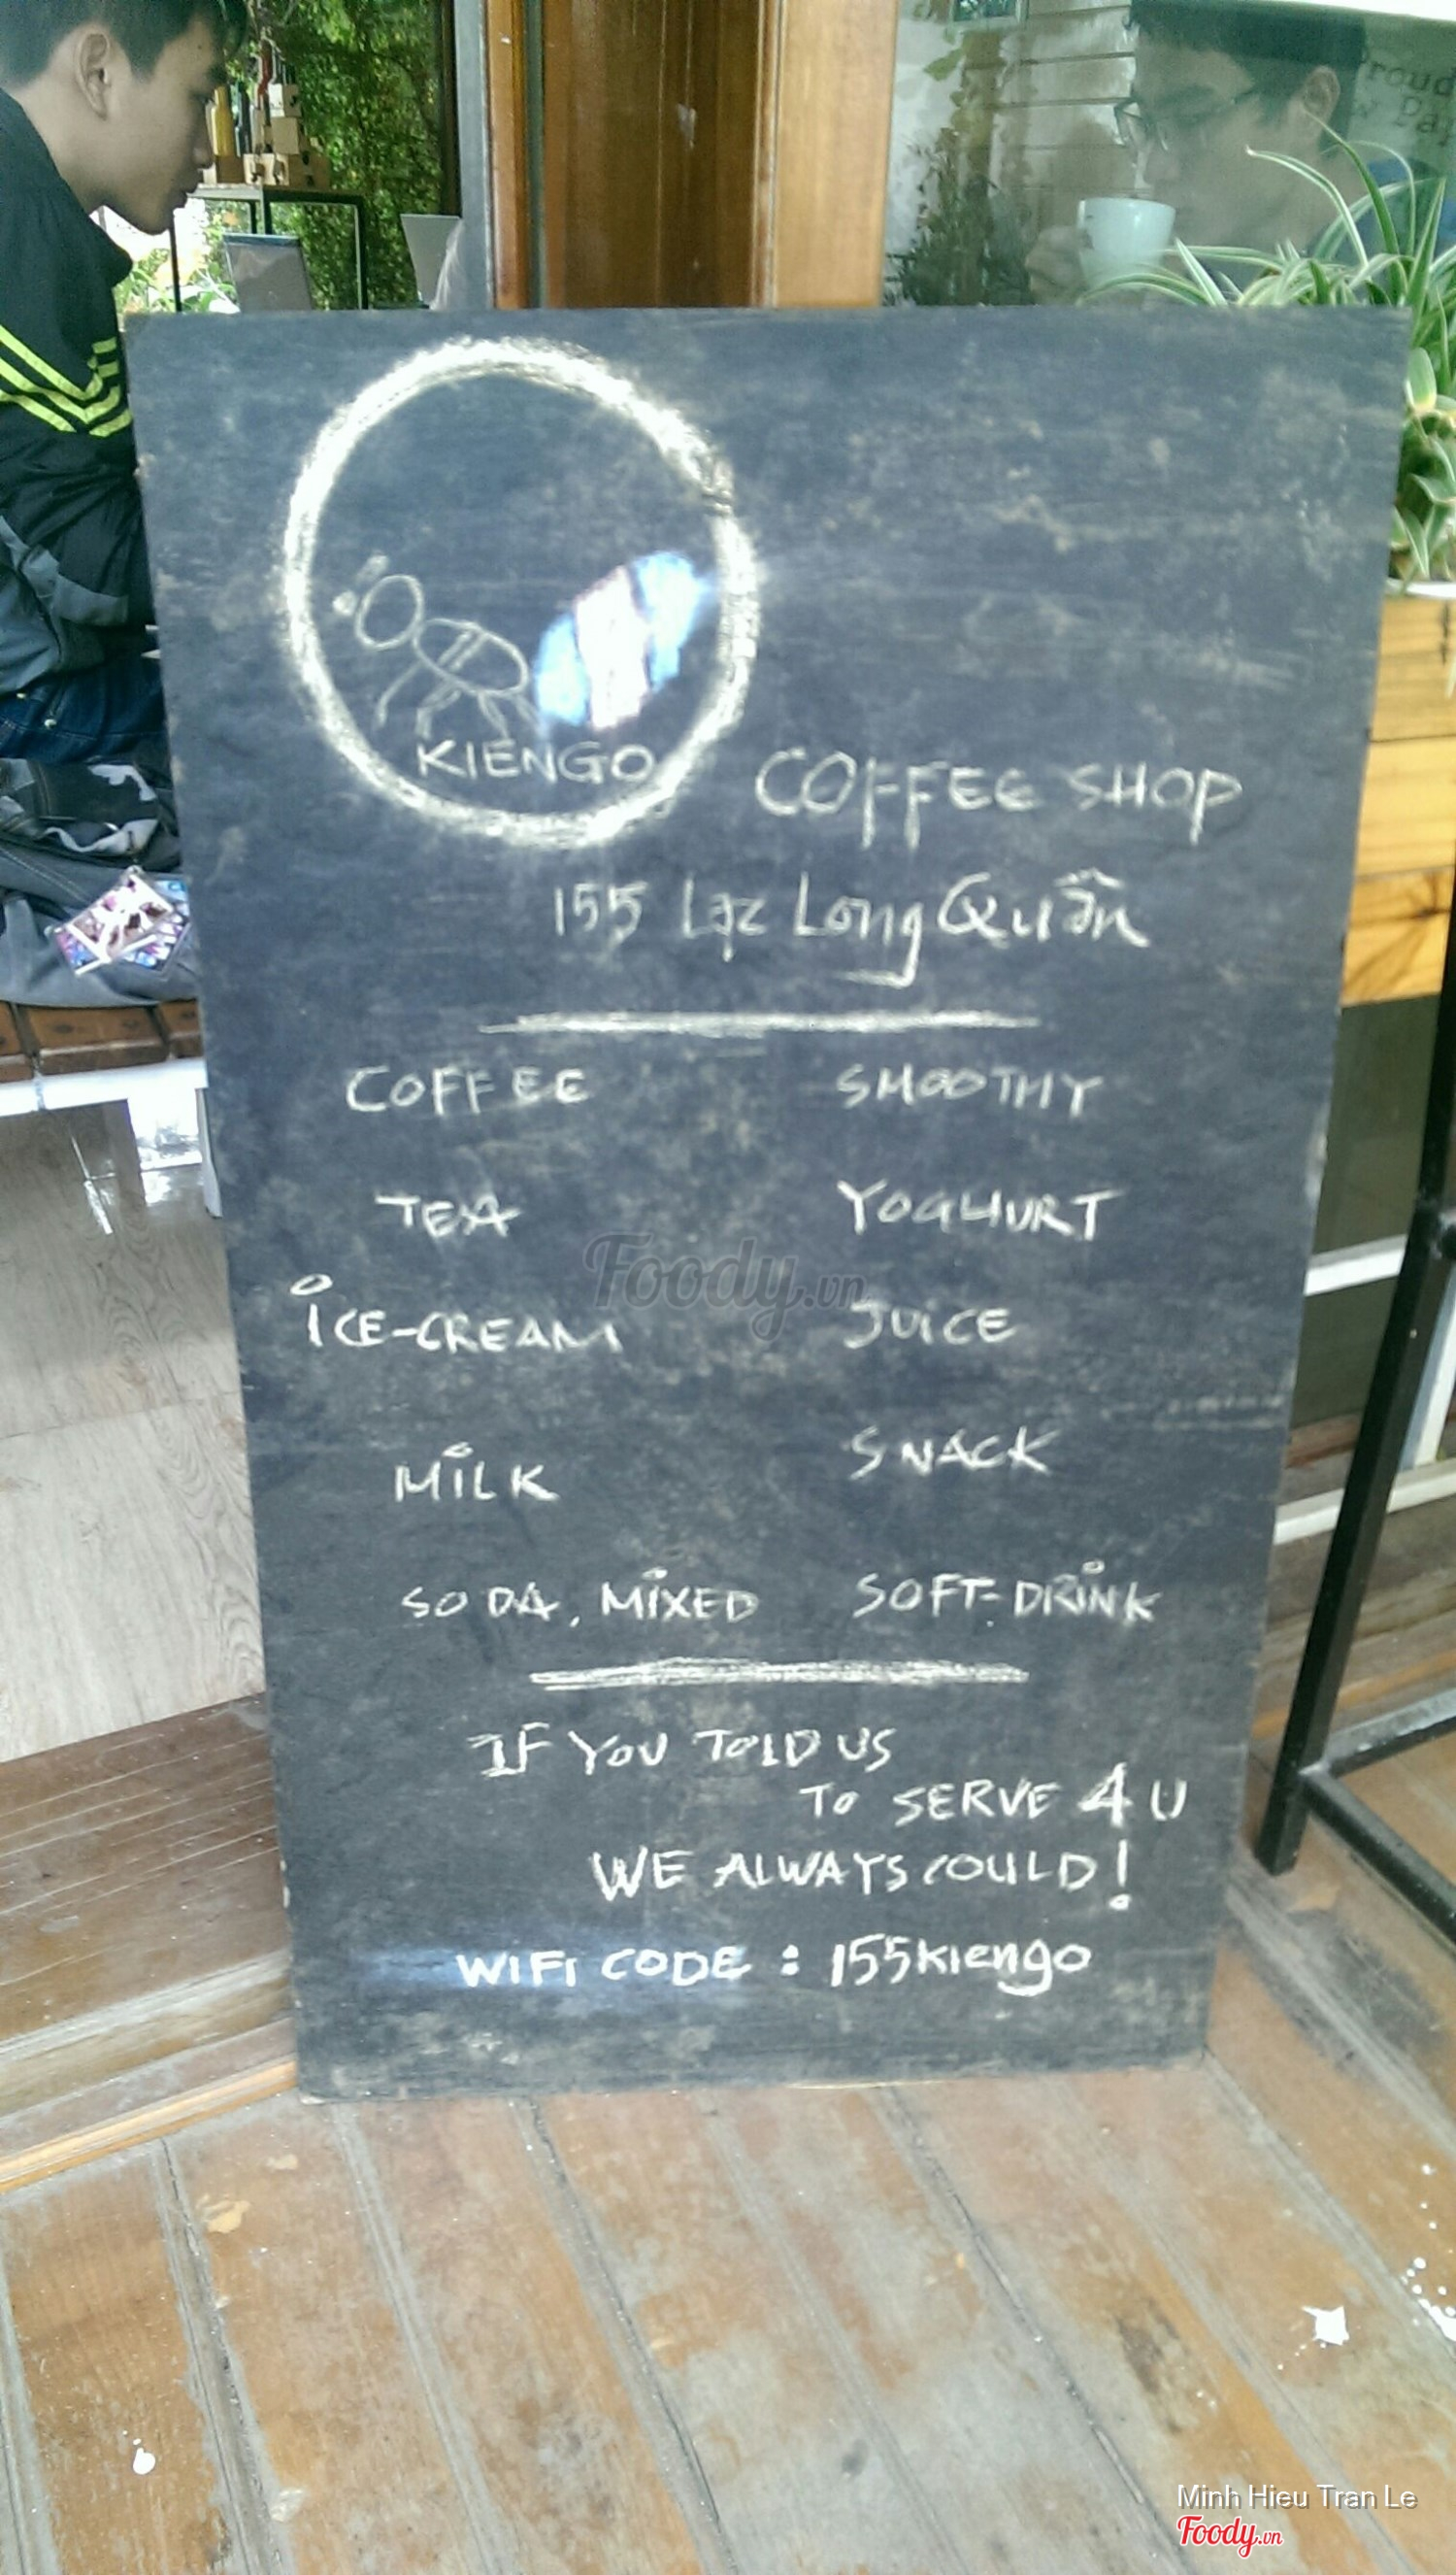 Proud
KIENGO
COFFEE SHOP
155 Lạc Long Quân
COFFEE SMOOTHY
TEA YOGHURT
ICE-CREAM JUICE
MILK SNACK
SODA, MIXED SOFT-DRINK
IF YOU TOLD US
TO SERVE 4 U
WE ALWAYS COULD!
WIFI CODE : 155kiengo
Foody.vn
Minh Hieu Tran Le
Foody.vn